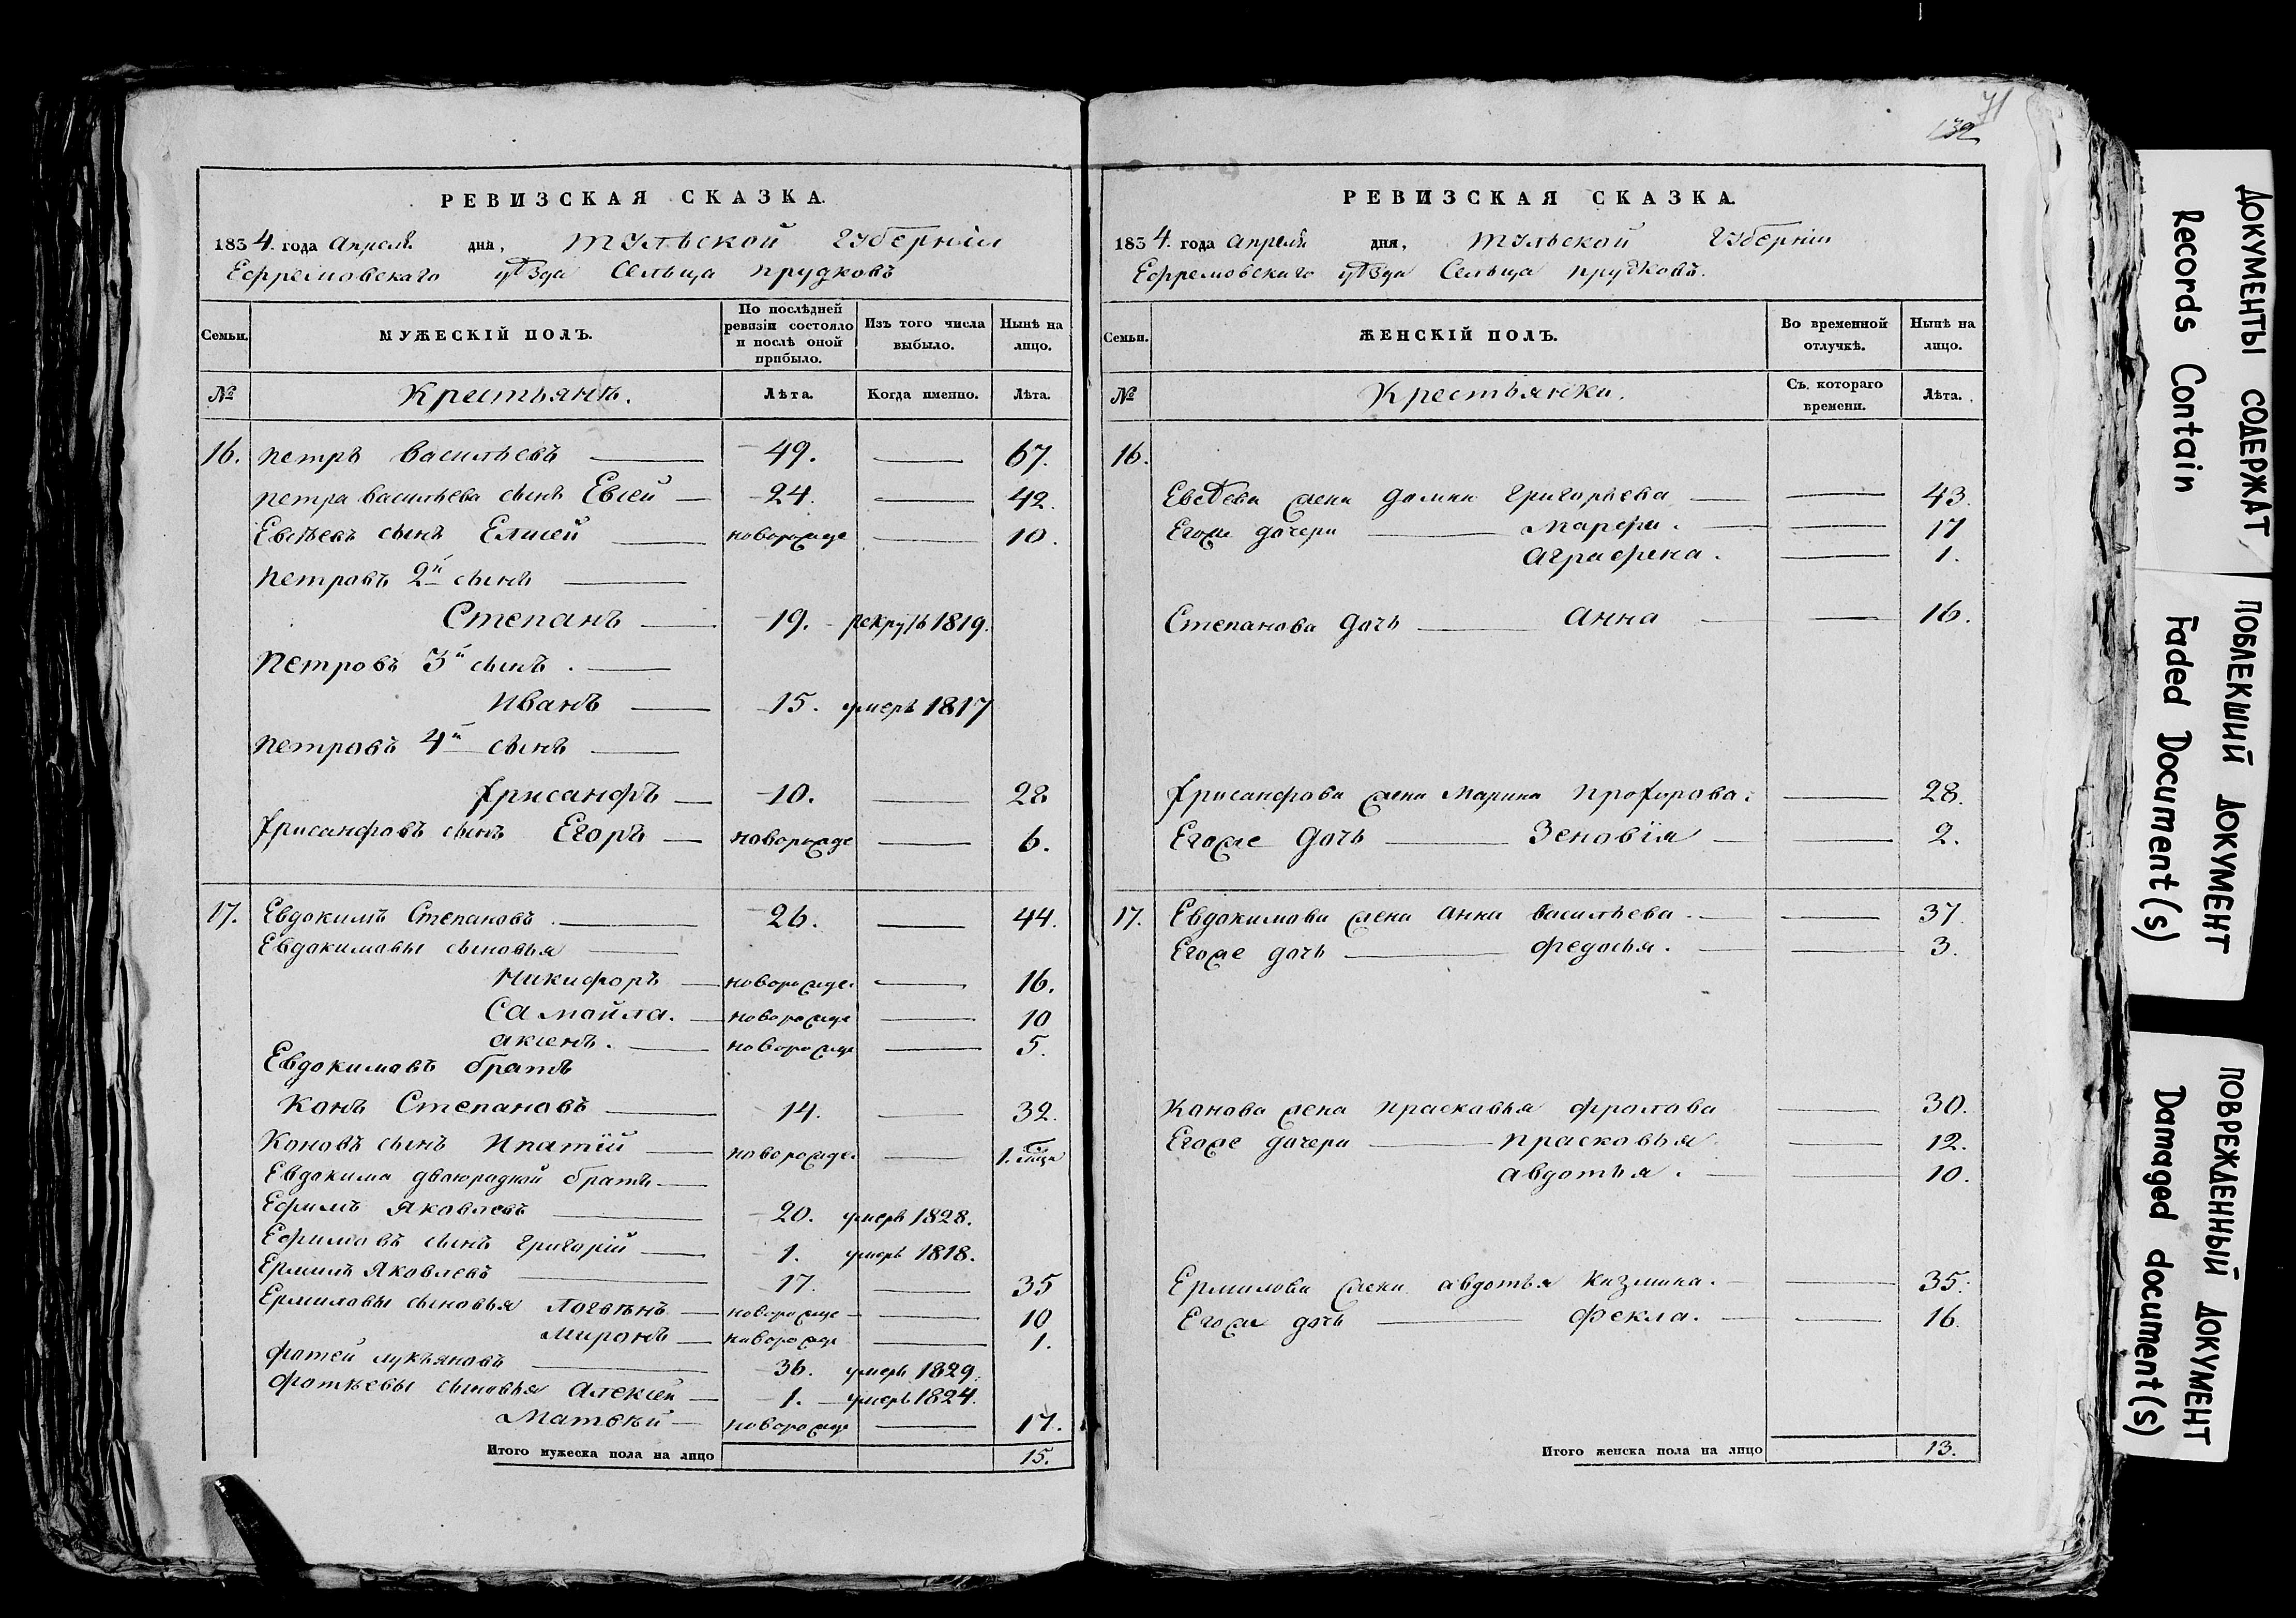 71
132
РЕВИЗСКАЯ СКАЗКА.
1834. года Апреля дня, Тульской Губерніи
Ефремовскаго уѣзда Сельца прудковъ
Семьи.
МУЖЕСКІЙ ПОЛЪ.
По послѣдней ревизіи состояло и послѣ оной прибыло.
Изъ того числа выбыло.
Нынѣ на лицо.
№
Крестьянѣ.
Лѣта.
Когда именно.
Лѣта.
16. петръ васильевъ — 49. — 67.
петра васильева сынъ Евсей — 24. — 42.
Евсѣевъ сынъ Елисей — новорожде — 10.
петровъ 2й сынъ —
Степанъ — 19. рекрутъ 1819.
петровъ 3й сынъ. —
Иванъ — 15. умеръ 1817
петровъ 4й сынъ —
Хрисанфъ — 10. — 28
Хрисанфовъ сынъ Егоръ — новорожде — 6.
17. Евдокимъ Степановъ. — 26. — 44.
Евдокимовы сыновья —
Никифоръ — новорожде. — 16.
Самойла. — новорожде — 10
аксенъ. — новорожде — 5.
Евдокимовъ братъ
Конъ Степановъ — 14. — 32.
Коновъ сынъ Ипатій — новорожде. — 1.
Евдокима двоюродной братъ. —
Ефимъ Яковлевъ — 20. умеръ 1828.
Ефимовъ сынъ григорій — 1. умеръ 1818.
Ермилъ Яковлевъ — 17. — 35
Ермиловы сыновья Логвенъ — новорожде — 10
Миронъ — новорожде — 1.
фотей лукьяновъ — 36. умеръ 1829.
фотѣевы сыновья Алексей — 1. — умеръ 1824.
Матвѣй — новорожде — 17.
Итого мужеска пола на лицо 15.
РЕВИЗСКАЯ СКАЗКА.
1834. года апреля дня, Тульской Губерніи
Ефремовскаго уѣзда Сельца прудковъ.
Семьи.
ЖЕНСКІЙ ПОЛЪ.
Во временной отлучкѣ.
Нынѣ на лицо.
№
Крестьянки.
Съ котораго времени.
Лѣта.
16.
Евсѣева жена домна григорьева — — 43.
Егоже дочери — марфа. — — 17
аграфена. — 1.
Степанова дочь — анна — — 16.
Хрисанфова жена марина прохорова. — 28.
Егоже дочь — Зеновія — — 2.
17. Евдокимова жена анна васильева. — — 37.
Егоже дочь — федосья. — — 3.
Конова жена прасковья фролова — 30.
Егоже дочери — прасковья — 12.
авдотья. — — 10.
Ермилова жена авдотья казмина. — 35.
Егоже дочь — фекла. — — 16.
Итого женска пола на лицо 13.
ДОКУМЕНТЫ СОДЕРЖАТ
Records Contain
ПОБЛЕКШИЙ ДОКУМЕНТ
Faded Document(s)
ПОВРЕЖДЕННЫЙ ДОКУМЕНТ
Damaged document(s)